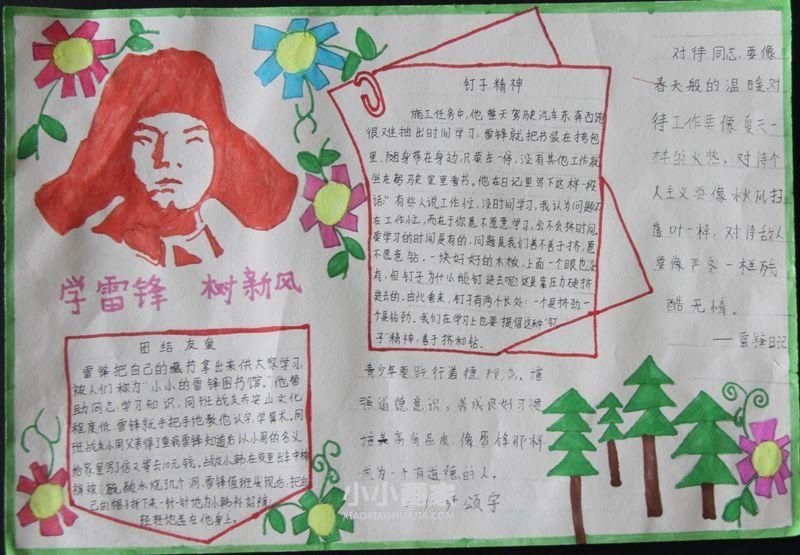 学雷锋 树新风
团结友爱
雷锋把自己的藏书拿出来供大家学习,
被人们称为“小小的雷锋图书馆”。他帮
助同志学习知识,同班战友乔安山文化
程度低,雷锋就手把手地教他认字,学算术。同
班战友小周父亲得了重病雷锋知道后以小周的名义
给家里写了信又寄去10元钱。战友小韩在夜里出车中棉
裤被硫酸水烧了几个洞,雷锋值班发现后,把自
己的帽子拆下来一针一针地为小韩补好裤
轻轻地盖在他身上。
钉子精神
施工任务中,他整天驾驶汽车东奔西跑
很难抽出时间学习,雷锋就把书装在挎包
里,随身带在身边,只要车一停,没有其他工作就
坐在驾驶室里看书。他在日记里写下这样一段
话:“有些人说工作忙,没时间学习,我认为问题不
在工作忙,而在于你愿不愿意学习,会不会挤时间。
要学习的时间是有的,问题是我们善不善于挤,愿
不愿意钻。一块好好的木板,上面一个眼也没
有,但钉子为什么能钉进去呢?这是靠压力硬挤
进去的。由此看来,钉子有两个长处:一个是挤劲一
个是钻劲。我们在学习上也要提倡这种“钉
子”精神,善于挤和钻。
对待同志要像
春天般的温暖,对
待工作要像夏天一
样的火热,对待个
人主义要像秋风扫
落叶一样,对待敌人
要像严冬一样残
酷无情。
——雷锋日记
青少年要践行道德规范,增
强道德意识,养成良好习惯
培养高尚品质,像雷锋那样
成为一个有道德的人。
颂宇
小小画家
XIAOXIAOHUAJIA.COM